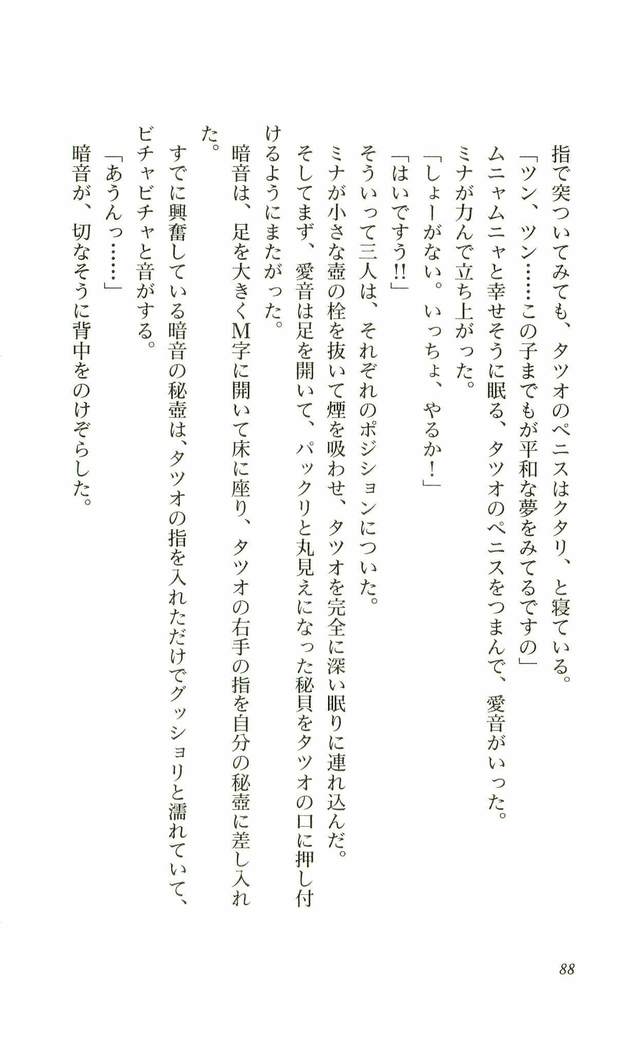 指で突ついてみても、タツオのペニスはクタリ、と寝ている。
「ツン、ツン……この子までもが平和な夢をみてるですの」
ムニャムニャと幸せそうに眠る、タツオのペニスをつまんで、愛音がいった。
ミナが力んで立ち上がった。
「しょーがない。いっちょ、やるか！」
「はいですう!!」
そういって三人は、それぞれのポジションについた。
ミナが小さな壺の栓を抜いて煙を吸わせ、タツオを完全に深い眠りに連れ込んだ。
そしてまず、愛音は足を開いて、パックリと丸見えになった秘貝をタツオの口に押し付
けるようにまたがった。
暗音は、足を大きくM字に開いて床に座り、タツオの右手の指を自分の秘壺に差し入れ
た。
すでに興奮している暗音の秘壺は、タツオの指を入れただけでグッショリと濡れていて、
ビチャビチャと音がする。
「あうんっ……」
暗音が、切なそうに背中をのけぞらした。
88